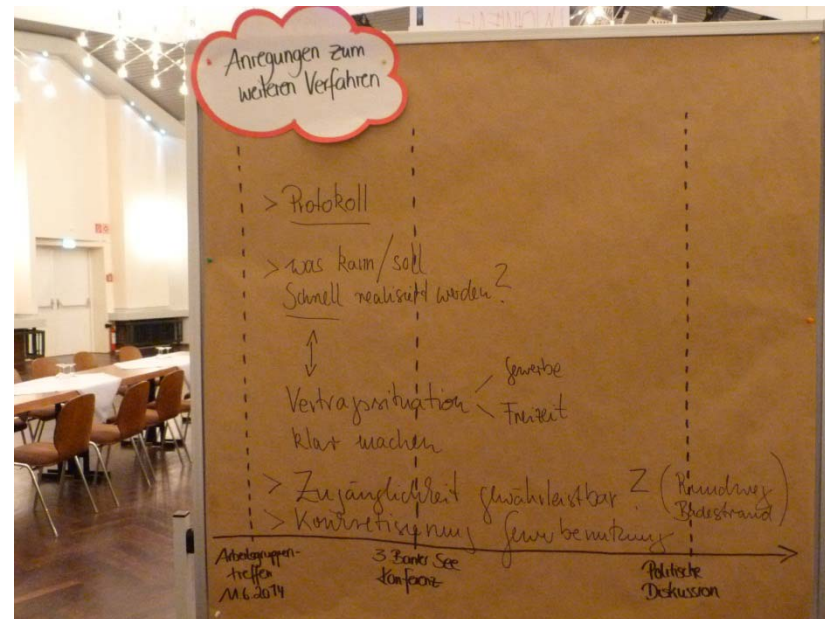 Anregungen zum
weiteren Verfahren
> Protokoll
> was kann/soll
Schnell realisiert werden?
Vertragssituation
Gewerbe
Freizeit
klar machen
> Zugänglichkeit gewährleistbar? (Rundweg
Badestrand)
> Konkretisierung Gewerbenutzung
Arbeitsgruppen-
treffen
11.6.2014
3. Banter See
Konferenz
Politische
Diskussion